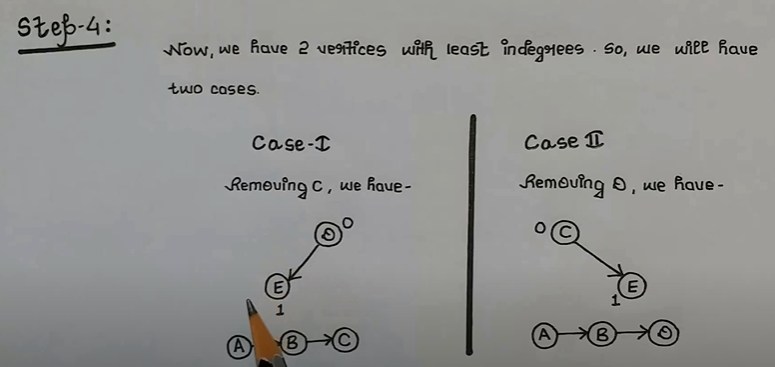 Step-4:
Now, we have 2 vertices with least indegrees. So, we will have
two cases.
Case-I
Removing C, we have-
D 0
E
1
A B C
Case II
Removing D, we have-
0 C
E
1
A B D